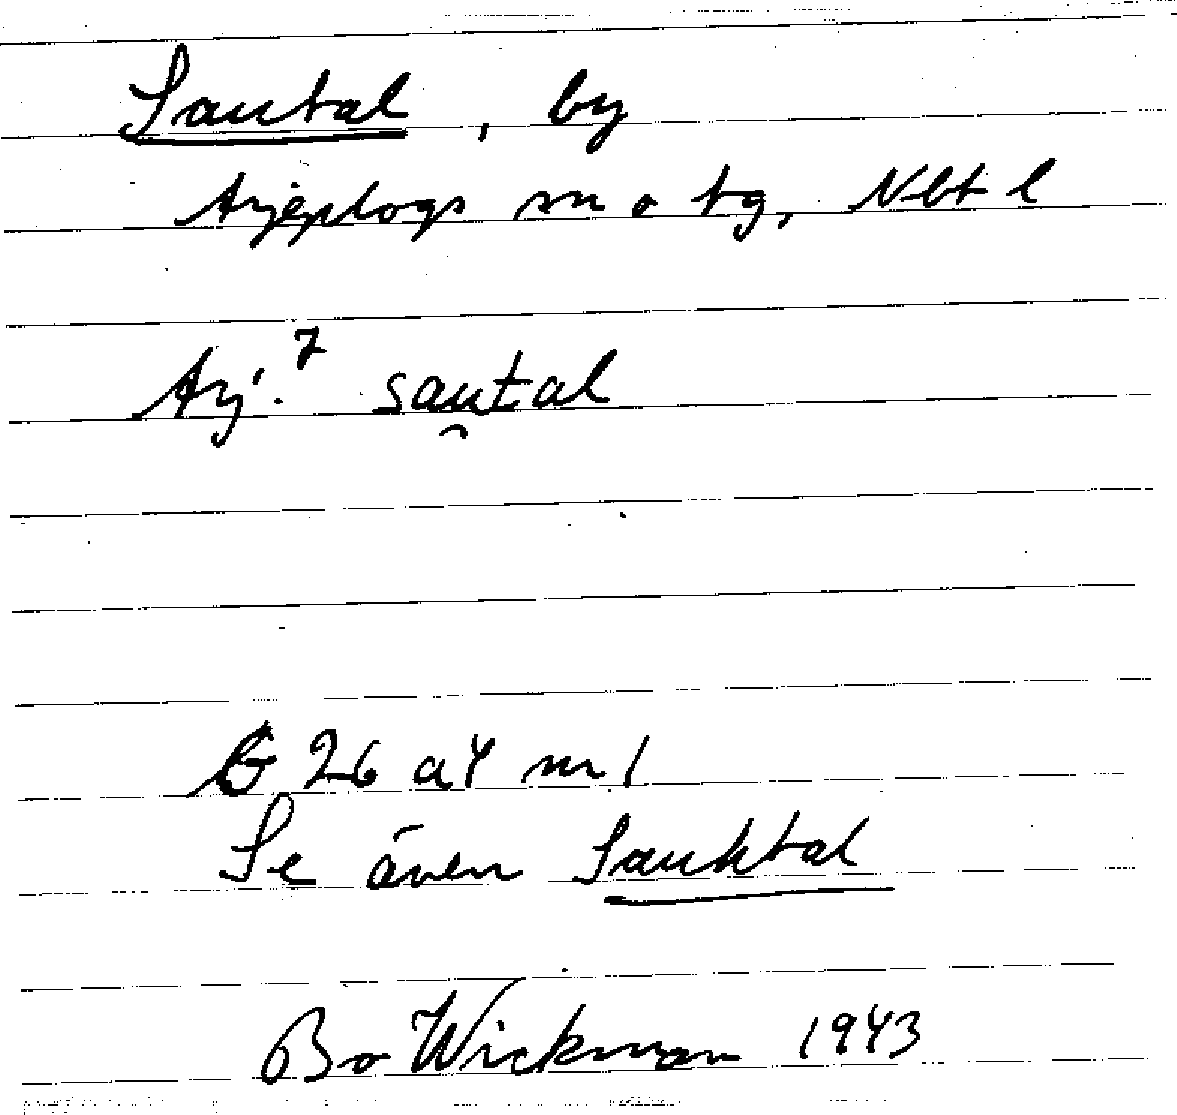 Sautal, by
Arjeplogs sn o tg, Nbt l
Arj.⁷ sau̯tal
G 26 a4 m 1
Se även Sauktal
Bo Wickman 1943